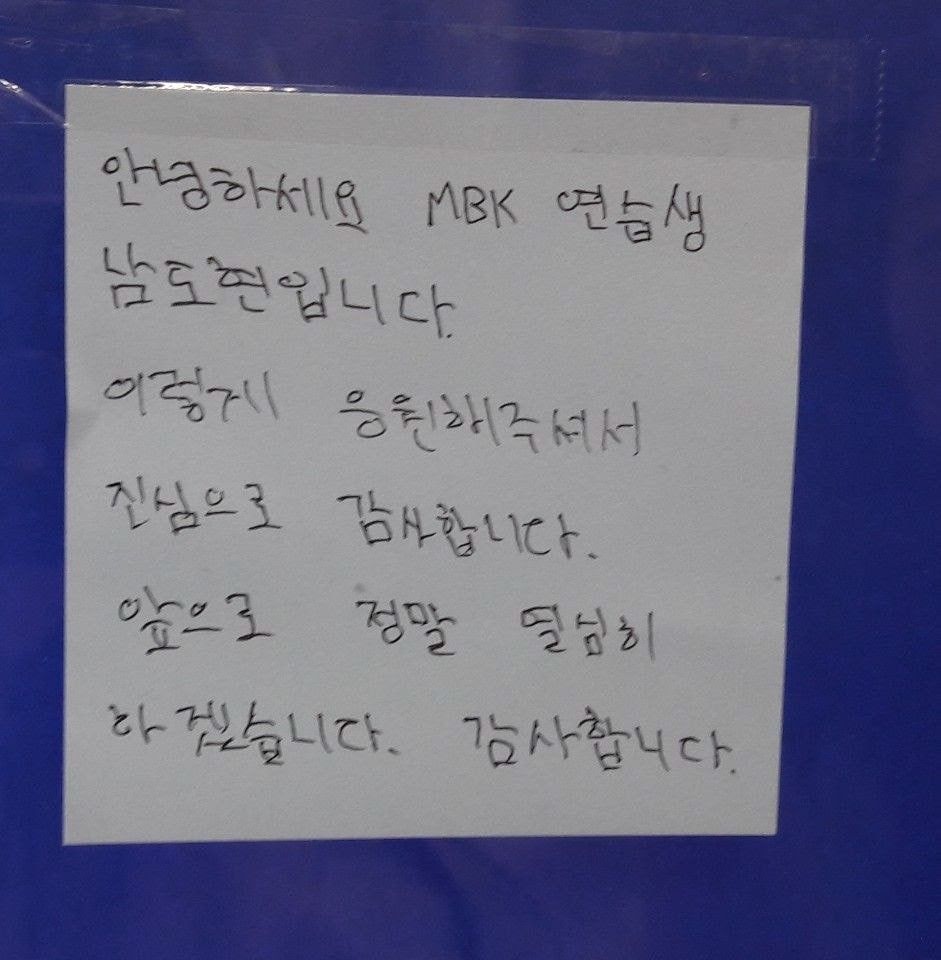 안녕하세요 MBK 연습생
남도현입니다.
이렇게 응원해주셔서
진심으로 감사합니다.
앞으로 정말 열심히
하겠습니다. 감사합니다.